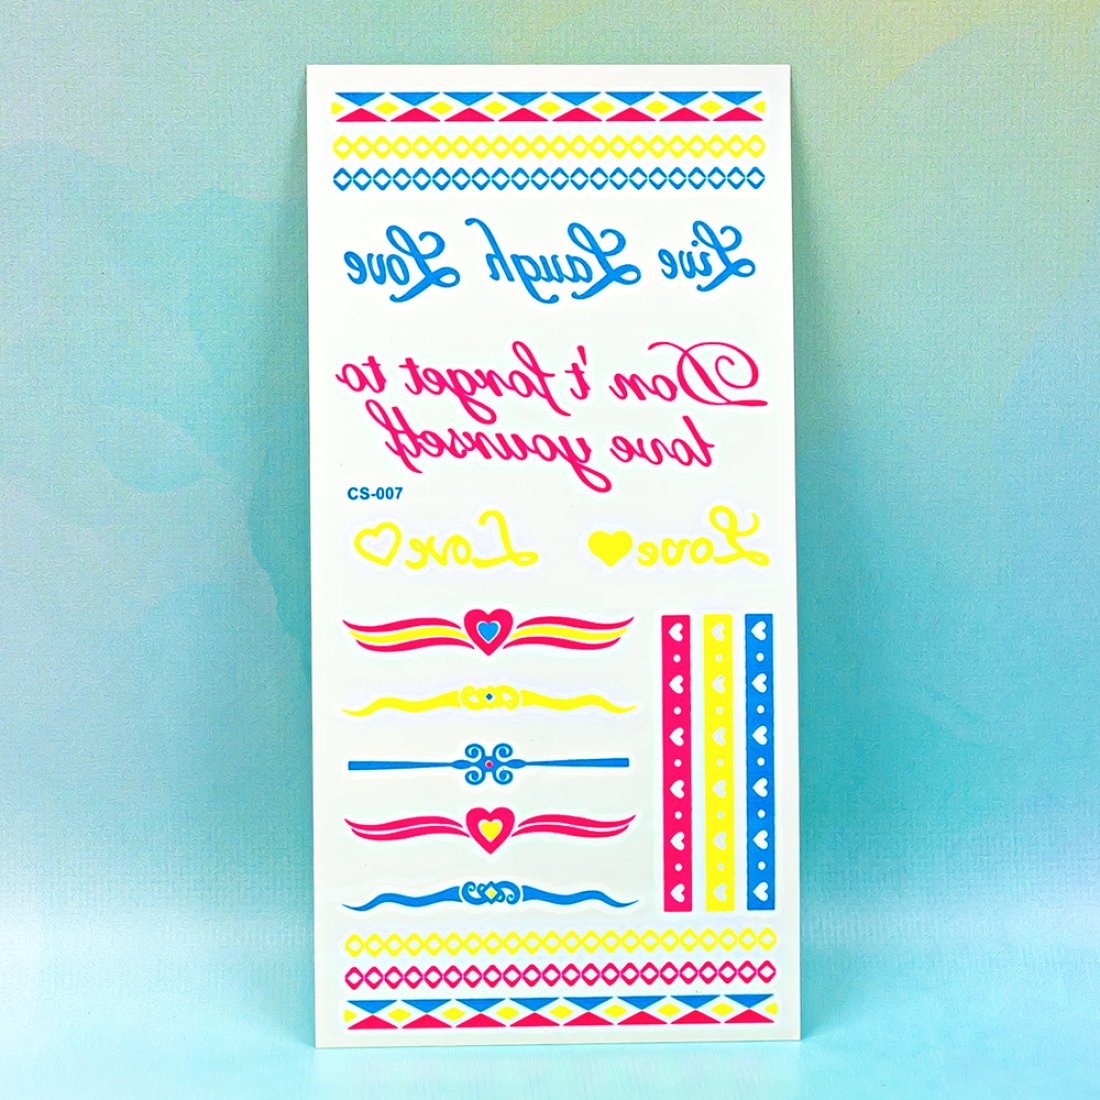 Live Laugh Love
Don't forget to
love yourself
CS-007
Love Love